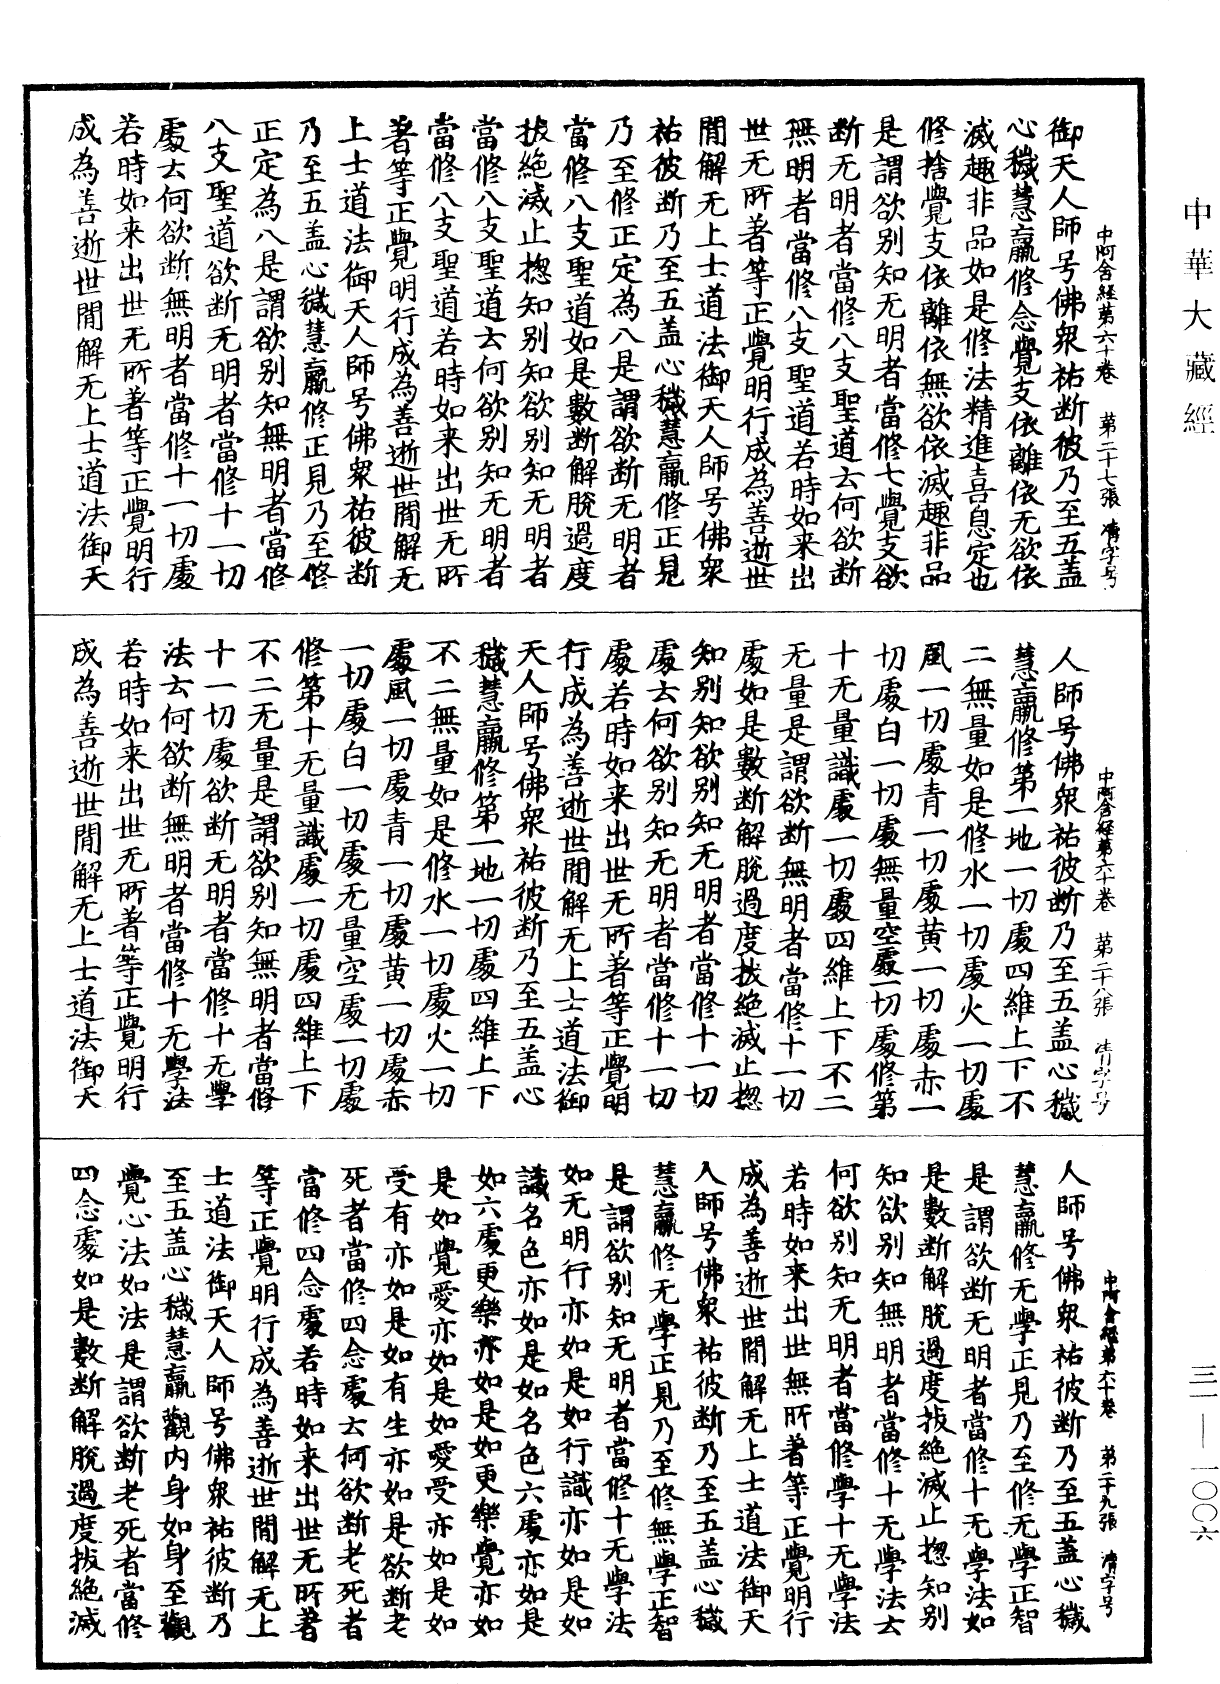 中華大藏經
三一—一〇〇六
中阿含經第六十卷 第二十七張 清字号
御天人師号佛眾祐断彼乃至五盖
心穢慧羸修念覺支依離依无欲依
滅趣非品如是修法精進喜息定也
修捨覺支依離依無欲依滅趣非品
是謂欲别知无明者當修七覺支欲
断无明者當修八支聖道云何欲断
無明者當修八支聖道若時如来出
世无所著等正覺明行成為善逝世
閒解无上士道法御天人師号佛眾
祐彼断乃至五盖心穢慧羸修正見
乃至修正定為八是謂欲断无明者
當修八支聖道如是數断解脫過度
拔絶滅止揔知别知欲别知无明者
當修八支聖道云何欲别知无明者
當修八支聖道若時如来出世无所
著等正覺明行成為善逝世閒解无
上士道法御天人師号佛眾祐彼断
乃至五盖心穢慧羸修正見乃至修
正定為八是謂欲别知無明者當修
八支聖道欲断无明者當修十一切
處云何欲断無明者當修十一切處
若時如来出世无所著等正覺明行
成為善逝世閒解无上士道法御天
中阿含經第六十卷 第二十八張 清字号
人師号佛眾祐彼断乃至五盖心穢
慧羸修第一地一切處四維上下不
二無量如是修水一切處火一切處
風一切處青一切處黄一切處赤一
切處白一切處無量空處一切處修第
十无量識處一切處四維上下不二
无量是謂欲断無明者當修十一切
處如是數断解脫過度拔絶滅止揔
知别知欲别知无明者當修十一切
處云何欲别知无明者當修十一切
處若時如来出世无所著等正覺明
行成為善逝世閒解无上士道法御
天人師号佛眾祐彼断乃至五盖心
穢慧羸修第一地一切處四維上下
不二無量如是修水一切處火一切
處風一切處青一切處黄一切處赤
一切處白一切處无量空處一切處
修第十无量識處一切處四維上下
不二无量是謂欲别知無明者當修
十一切處欲断无明者當修十无學
法云何欲断無明者當修十无學法
若時如来出世无所著等正覺明行
成為善逝世閒解无上士道法御天
中阿含經第六十卷 第二十九張 清字号
人師号佛眾祐彼断乃至五盖心穢
慧羸修无學正見乃至修无學正智
是謂欲断无明者當修十无學法如
是數断解脫過度拔絶滅止揔知别
知欲别知無明者當修十无學法云
何欲别知无明者當修學十无學法
若時如来出世無所著等正覺明行
成為善逝世閒解无上士道法御天
人師号佛眾祐彼断乃至五盖心穢
慧羸修无學正見乃至修無學正智
是謂欲别知无明者當修十无學法
如无明行亦如是如行識亦如是如
識名色亦如是如名色六處亦如是
如六處更樂亦如是如更樂覺亦如
是如覺愛亦如是如愛受亦如是如
受有亦如是如有生亦如是欲断老
死者當修四念處云何欲断老死者
當修四念處若時如来出世无所著
等正覺明行成為善逝世閒解无上
士道法御天人師号佛眾祐彼断乃
至五盖心穢慧羸觀内身如身至觀
覺心法如法是謂欲断老死者當修
四念處如是數断解脫過度拔絶滅